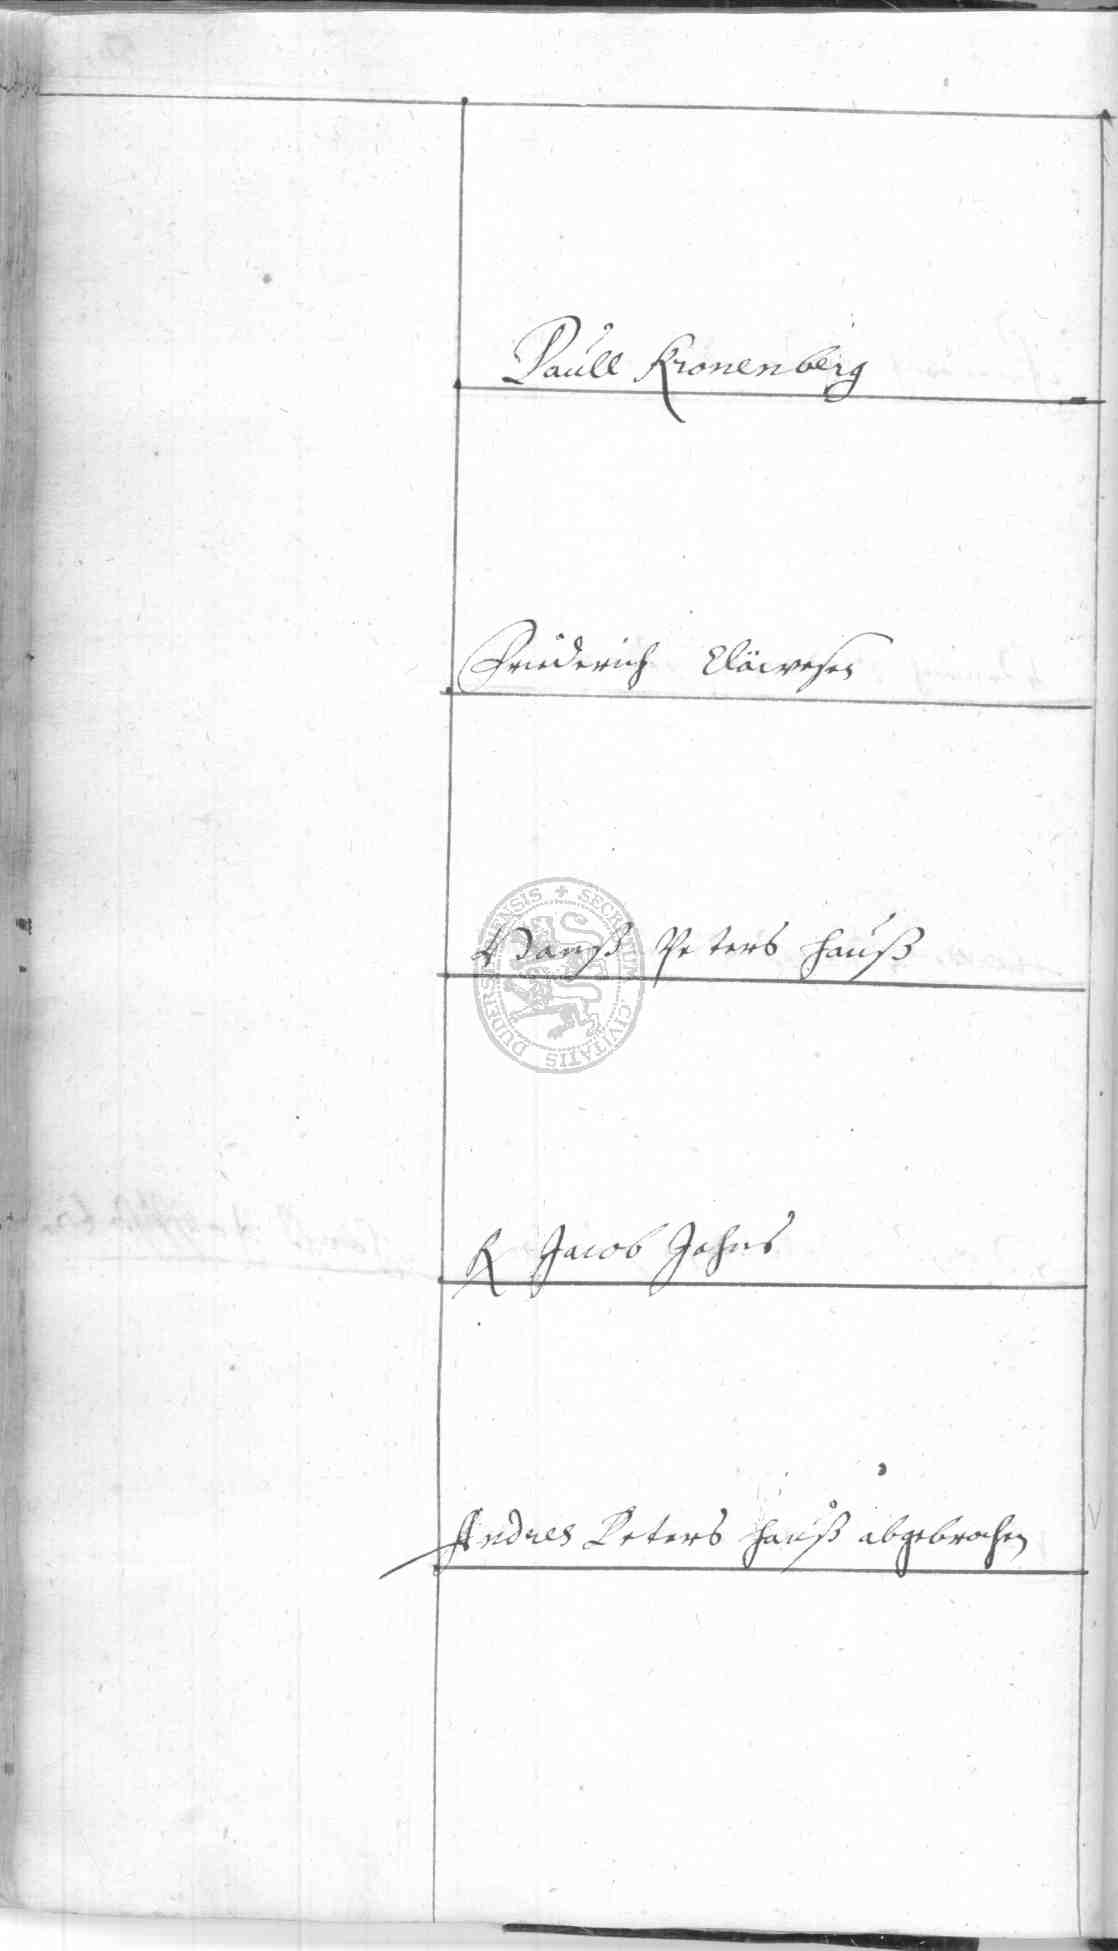 Paull Kronenberg
Friederich
SECRETUM CIVITATIS DUDERSTADENSIS
Hanß Peters Hauß
R Jacob Jahns
Andres Peters Hauß abgebrochen